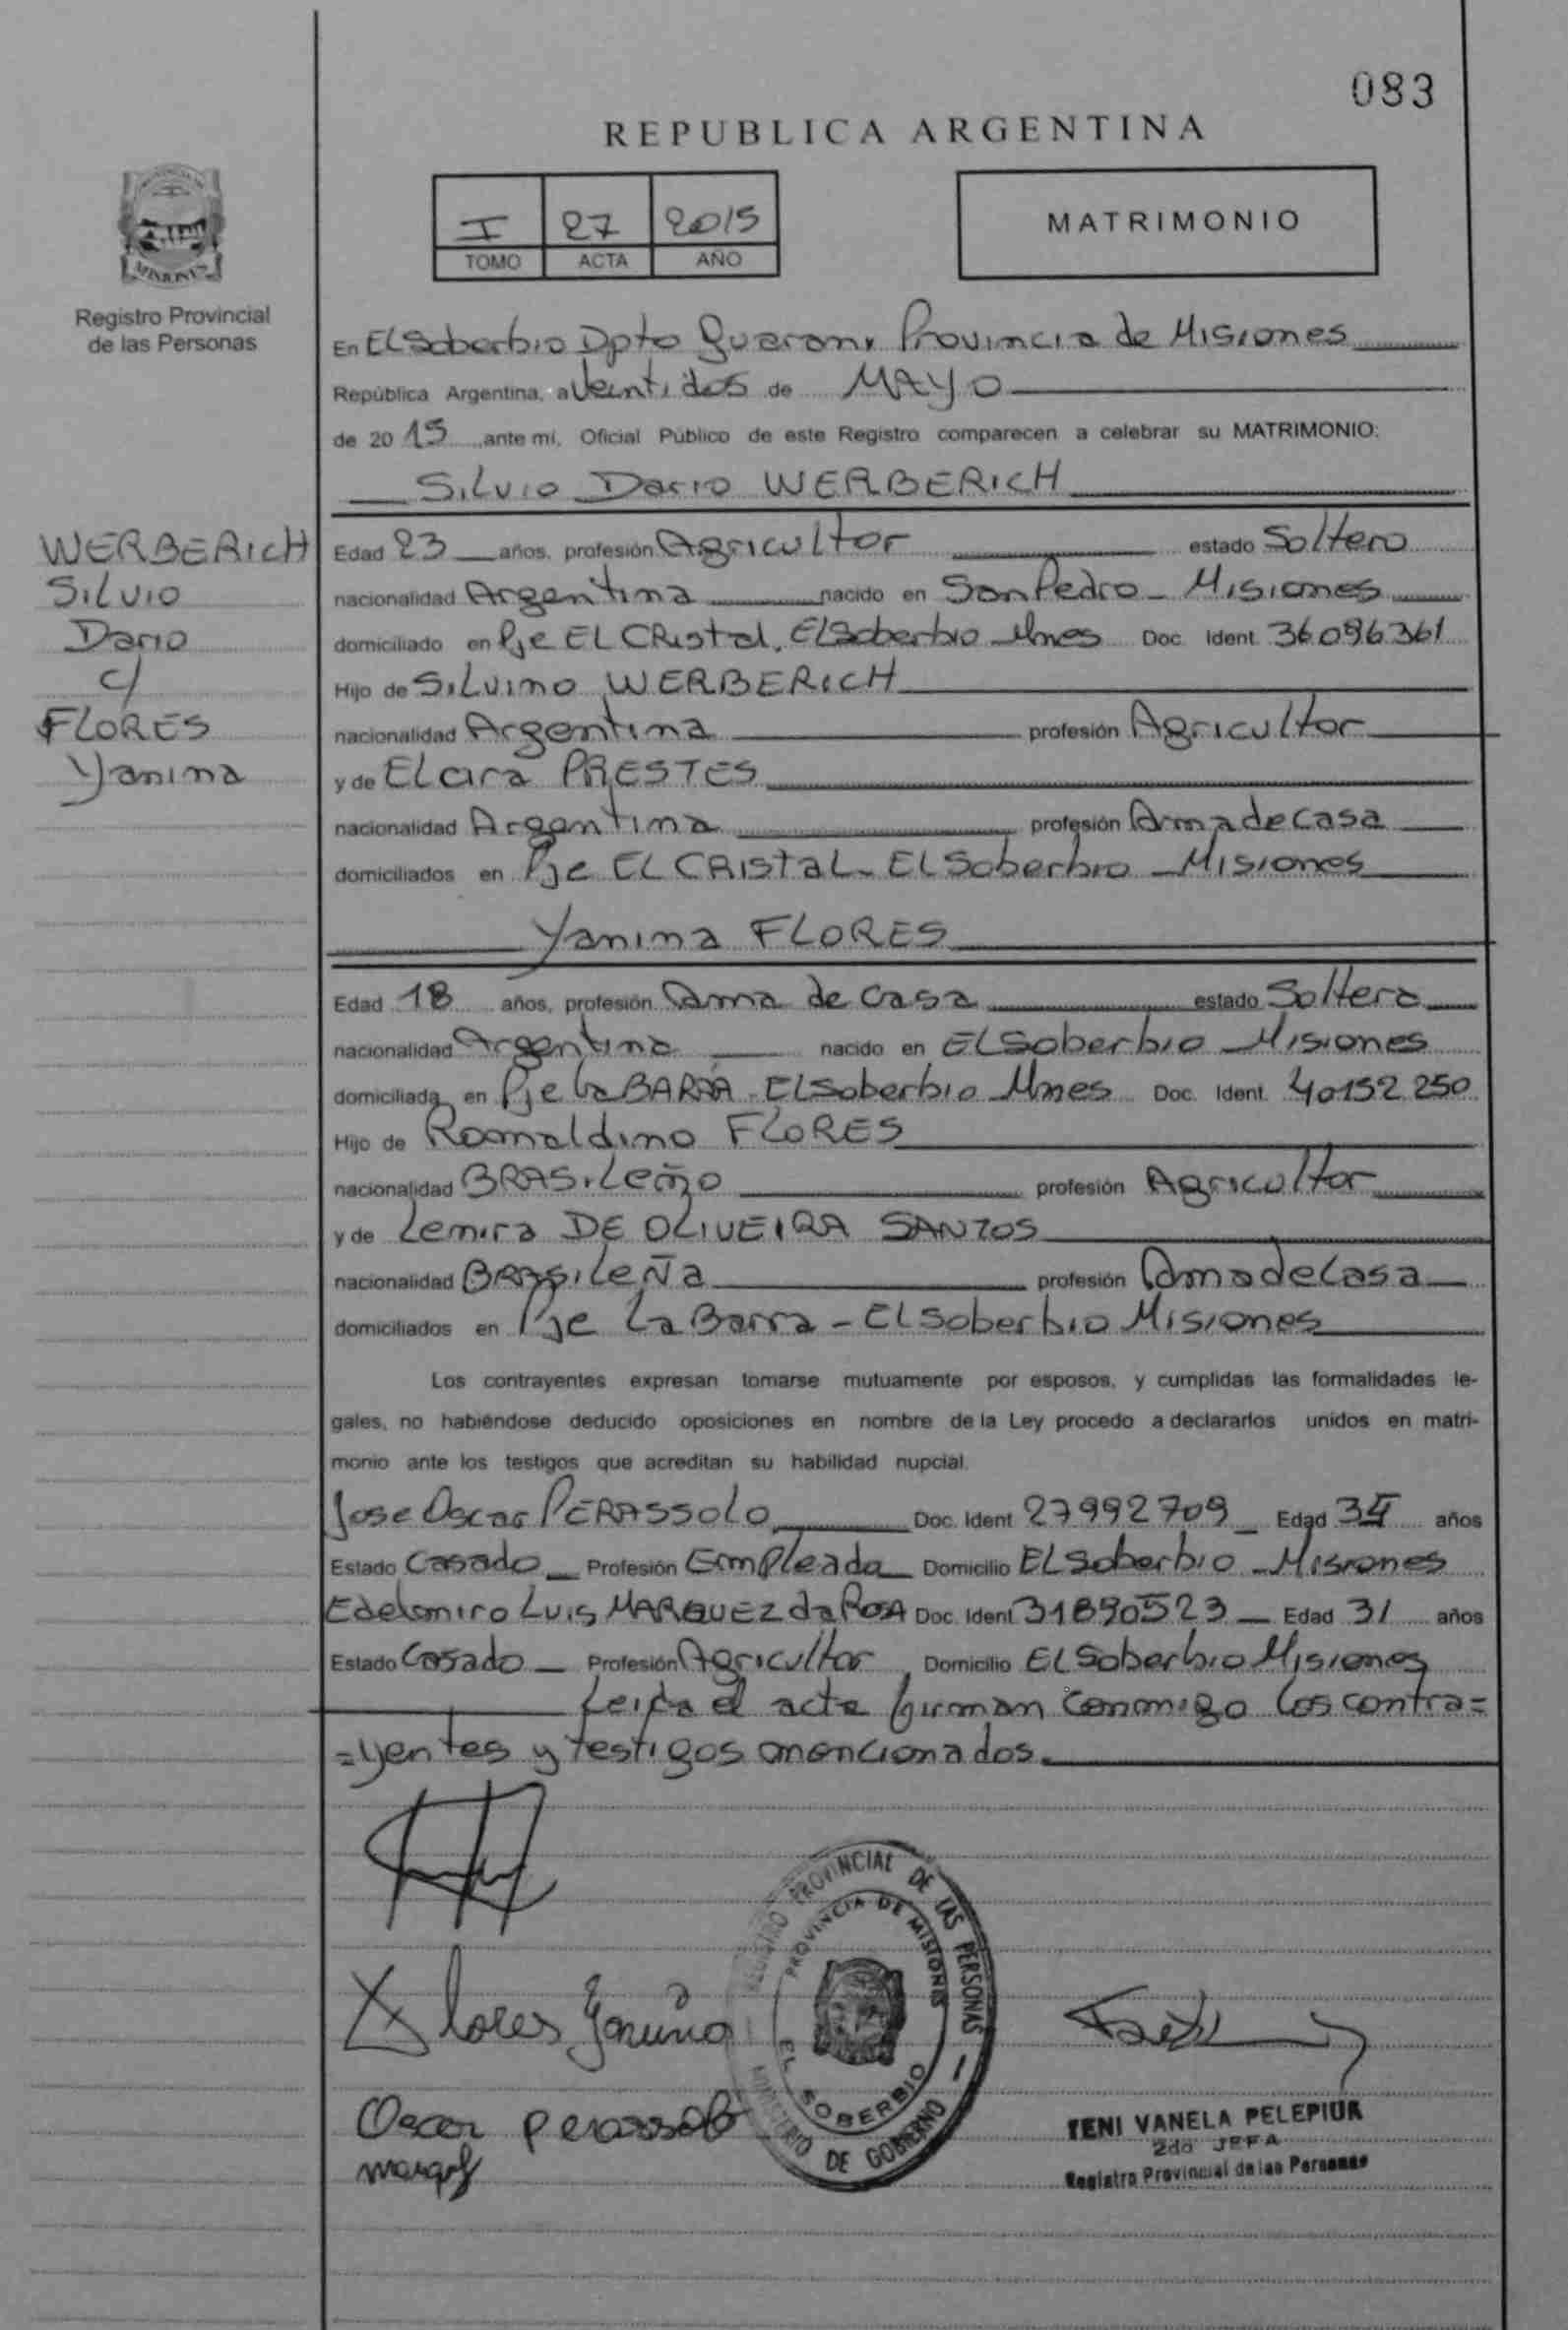 083
REPUBLICA ARGENTINA
I 27 2015
TOMO ACTA AÑO
MATRIMONIO
Registro Provincial
de las Personas
En El Soberbio Dpto Guarani Provincia de Misiones
República Argentina, a Veintidos de MAYO
de 2015 ante mí, Oficial Público de este Registro comparecen a celebrar su MATRIMONIO:
Silvio Dario WERBERICH
WERBERICH
Silvio
Dario
c/
FLORES
Yanina
Edad 23 años, profesión Agricultor estado Soltero
nacionalidad Argentina nacido en San Pedro - Misiones
domiciliado en Pje EL CRistal, El Soberbio Mnes Doc. Ident. 36.096.361
Hijo de Silvino WERBERICH
nacionalidad Argentina profesión Agricultor
y de Elcira PRESTES
nacionalidad Argentina profesión Ama de casa
domiciliados en Pje EL CRISTAL - El Soberbio - Misiones
Yanina FLORES
Edad 18 años, profesión Ama de casa estado Soltera
nacionalidad Argentina nacido en El Soberbio - Misiones
domiciliada en Pje la BARRA - El Soberbio Mnes Doc. Ident. 40152.250
Hijo de Romaldino FLORES
nacionalidad BRASileño profesión Agricultor
y de Lemira DE OLIVEIRA SANTOS
nacionalidad BRASileÑa profesión Ama de Casa
domiciliados en Pje La Barra - El Soberbio Misiones
Los contrayentes expresan tomarse mutuamente por esposos, y cumplidas las formalidades le-
gales, no habiéndose deducido oposiciones en nombre de la Ley procedo a declararlos unidos en matri-
monio ante los testigos que acreditan su habilidad nupcial.
Jose Oscar PERASSOLO Doc. Ident 27992709 Edad 34 años
Estado Casado Profesión Empleado Domicilio El Soberbio - Misiones
Edelmiro Luis MARQUEZ da ROSA Doc. Ident 31890523 Edad 31 años
Estado Casado Profesión Agricultor Domicilio El Soberbio Misiones
Leida el acta firman conmigo los contra=
=yentes y testigos mencionados.
Flores Yanina
Oscar perassolo
REGISTRO PROVINCIAL DE LAS PERSONAS
MINISTERIO DE GOBIERNO
PROVINCIA DE MISIONES
EL SOBERBIO
YENI VANELA PELEPIUK
2da JEFA
Registro Provincial de las Personas